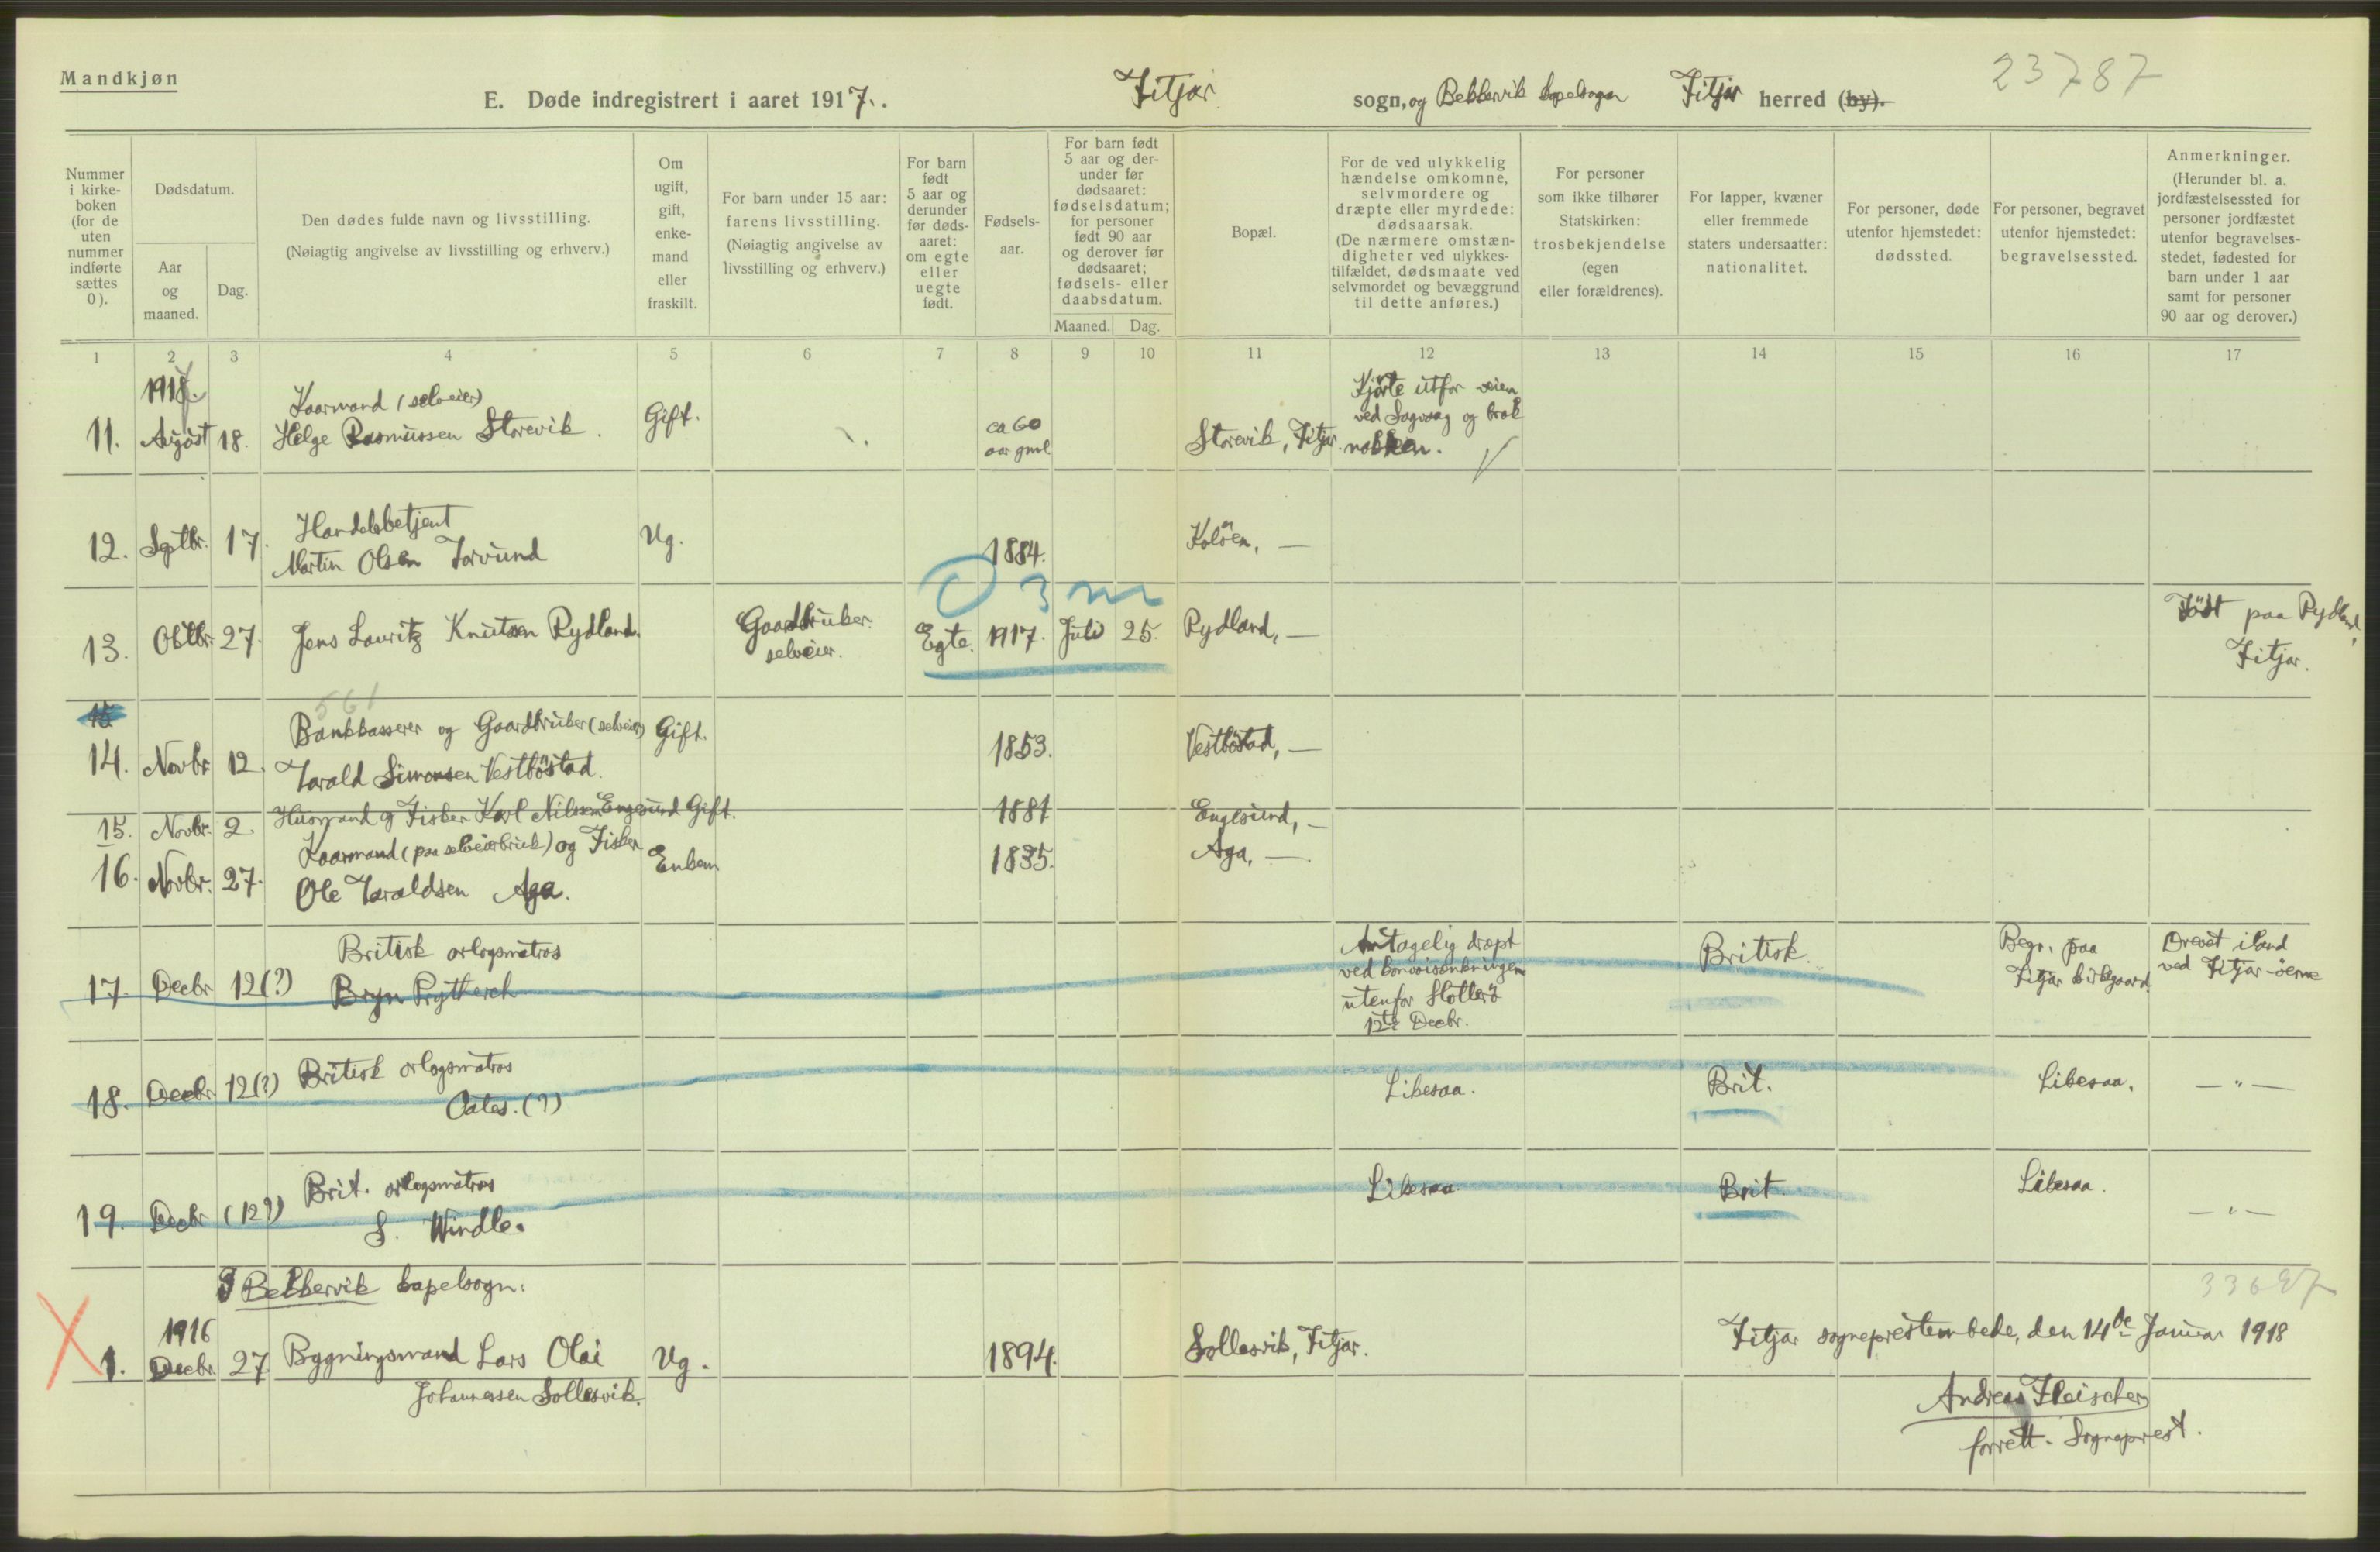 Mandkjøn
E. Døde indregistrert i aaret 1917. Fitjar sogn, og Bekkervik kapelsogn Fitjar herred (by).
23787
Nummer i kirke-boken (for de uten nummer indførte sættes 0).
Dødsdatum.
Aar og maaned.
Dag.
Den dødes fulde navn og livsstilling.
(Nøiagtig angivelse av livsstilling og erhverv.)
Om ugift, gift, enke-mand eller fraskilt.
For barn under 15 aar: farens livsstilling.
(Nøiagtig angivelse av livsstilling og erhverv.)
For barn født 5 aar og derunder før døds-aaret: om egte eller uegte født.
Fødsels-aar.
For barn født 5 aar og der-under før dødsaaret: fødselsdatum; for personer født 90 aar og derover før dødsaaret; fødsels- eller daabsdatum.
Maaned. Dag.
Bopæl.
For de ved ulykkelig hændelse omkomne, selvmordere og dræpte eller myrdede: dødsaarsak.
(De nærmere omstæn-digheter ved ulykkes-tilfældet, dødsmaate ved selvmordet og bevæggrund til dette anføres.)
For personer som ikke tilhører Statskirken: trosbekjendelse (egen eller forældrenes).
For lapper, kvæner eller fremmede staters undersaatter: nationalitet.
For personer, døde utenfor hjemstedet: dødssted.
For personer, begravet utenfor hjemstedet: begravelsessted.
Anmerkninger.
(Herunder bl. a. jordfæstelsessted for personer jordfæstet utenfor begravelses-stedet, fødested for barn under 1 aar samt for personer 90 aar og derover.)
1 2 3 4 5 6 7 8 9 10 11 12 13 14 15 16 17
1917.
11. August 18. Kaarmand (selveier)
Helge Rasmussen Storevik. Gift. ca 60 aar gml. Storevik, Fitjar. Kjørte utfor veien ved Sagvaag og brak nakken.
12. Septbr. 17. Handelsbetjent
Martin Olsen Torvund Ug. 1884. Koløen, —
3 m
13. Oktbr. 27. Jens Lauritz Knutsen Rydland. Gaardbruker. selveier. Egte. 1917. Juli 25. Rydland, — Født paa Rydland, Fitjar.
15
561
14. Novbr. 12. Bankkasserer og Gaardbruker (selveier)
Tarald Simonsen Vestbøstad. Gift. 1853. Vestbøstad, —
15. Novbr. 2. Husmand og Fisker Karl Nilssen Engesund Gift. 1881 Engesund, —
16. Novbr. 27. Kaarmand (paa selveierbruk) og Fisker
Ole Taraldsen Aga. Enkem. 1835. Aga, —
17. Decbr. 12(?) Britisk orlogsmatros
Bryn Prytherch Antagelig dræpt ved konvoisænkningen utenfor Slotterø 12te Decbr. Britisk. Begr. paa Fitjar kirkegaard. Drevet iland ved Fitjar-øerne
18. Decbr. 12(?) Britisk orlogsmatros
Oates. (?) Likesaa. Brit. Likesaa. — " —
19. Decbr (12?) Brit. orlogsmatros
S. Windle. Likesaa. Brit. Likesaa. — " —
I Bekkervik kapelsogn:
33697
1916
1. Decbr. 27 Bygningsmand Lars Olai
Johannessen Sollesvik. Ug. 1894. Sollesvik, Fitjar.
Fitjar sogneprestembede, den 14de Januar 1918
Andreas Fleischer
forrett. Sogneprest.